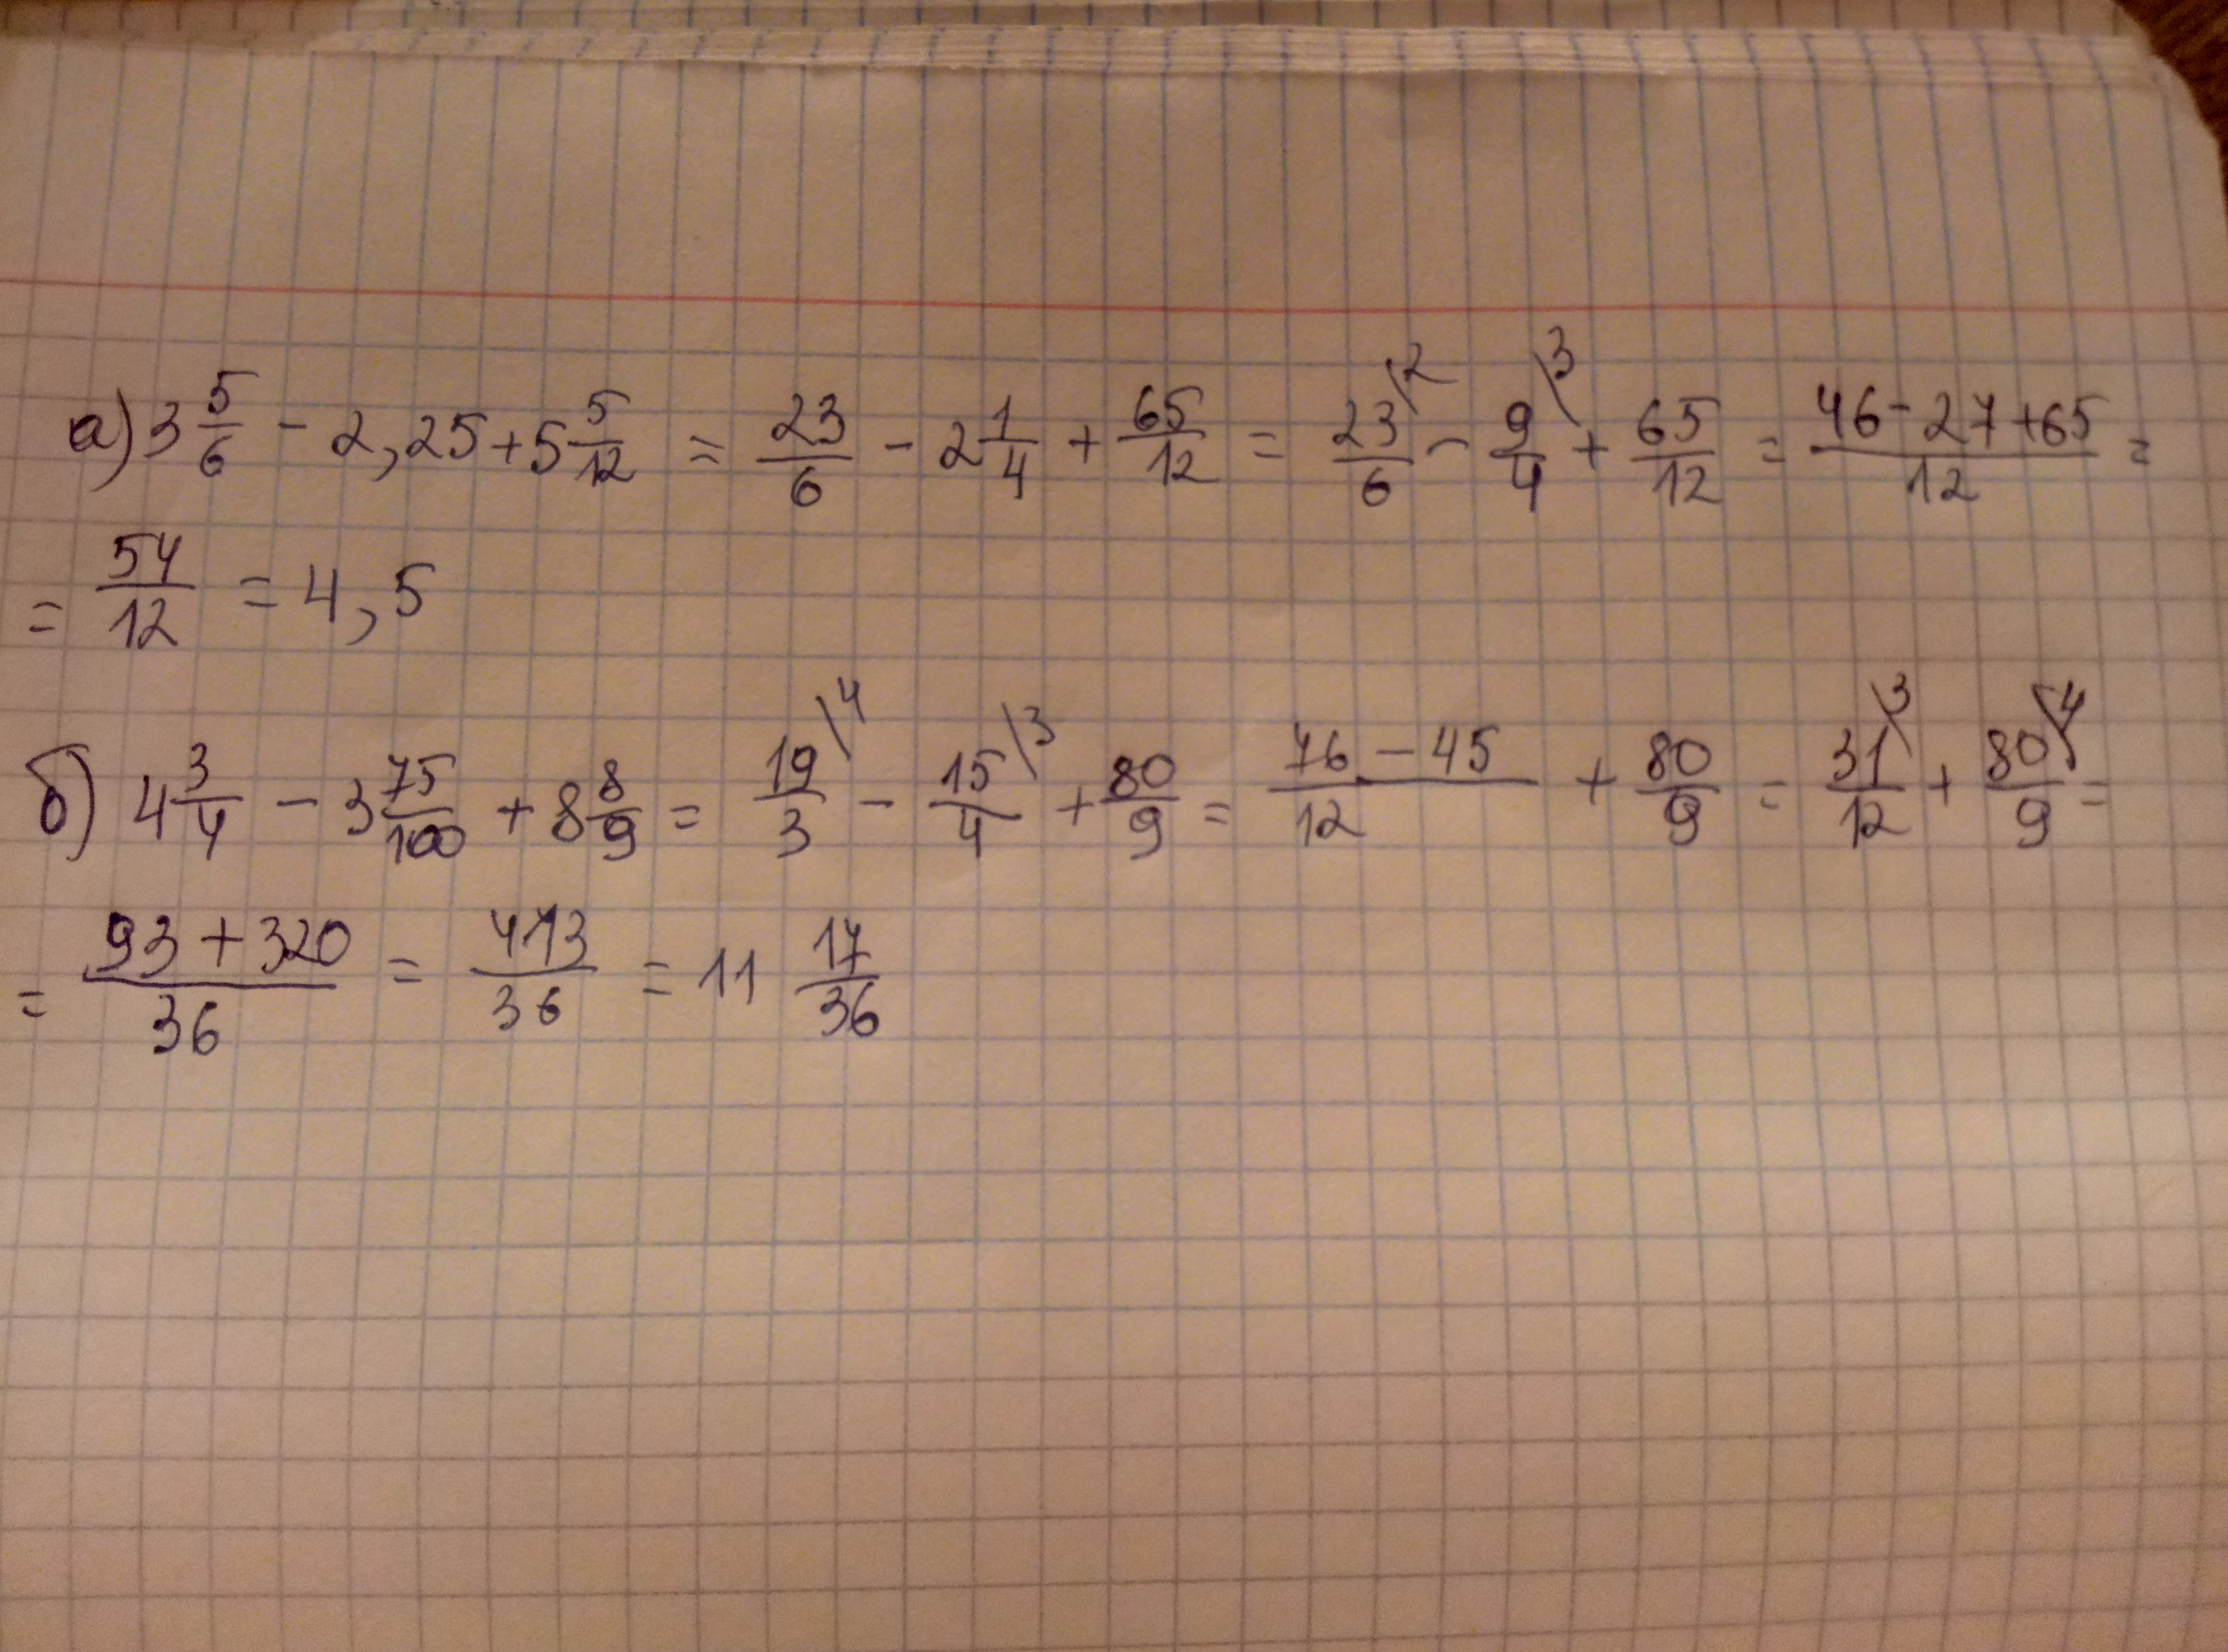 а) 3 5/6 - 2,25 + 5 5/12 = 23/6 - 2 1/4 + 65/12 = 23\2/6 - 9\3/4 + 65/12 = 46 - 27 + 65/12 =
= 54/12 = 4,5
б) 4 3/4 - 3 75/100 + 8 8/9 = 19\4/3 - 15\3/4 + 80/9 = 76 - 45/12 + 80/9 = 31\3/12 + 80\4/9 =
= 93 + 320/36 = 413/36 = 11 17/36